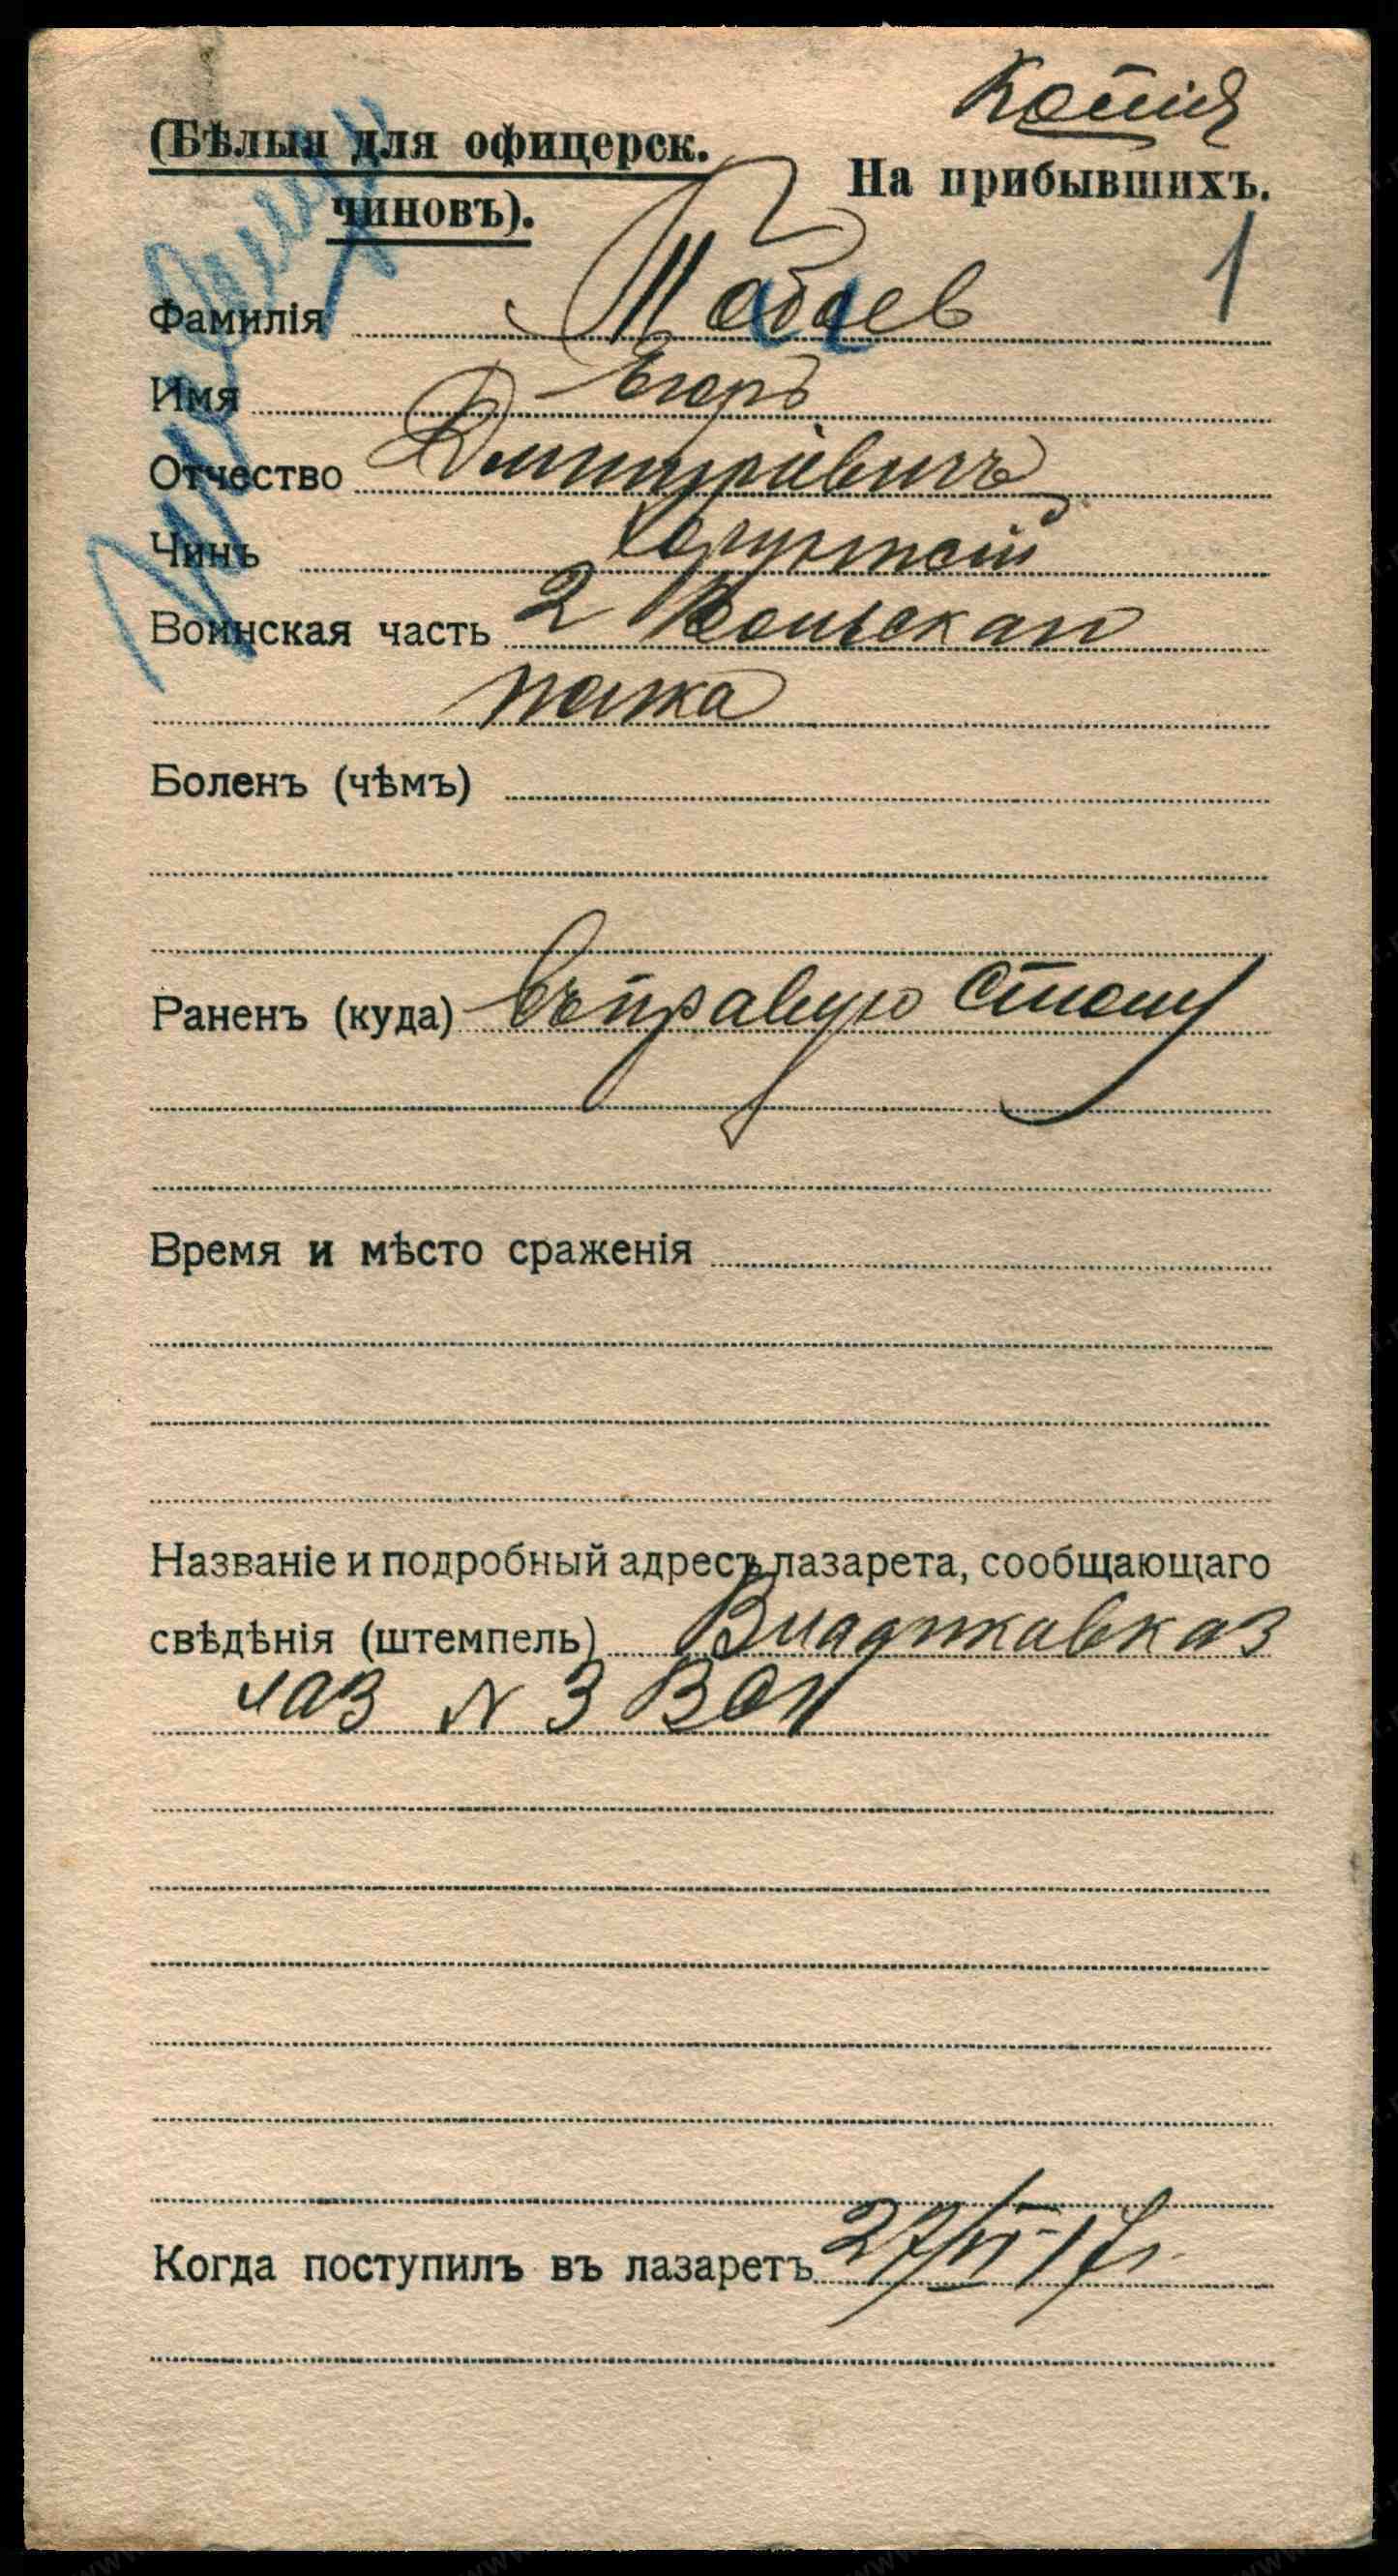 Копія
(Бѣлыя для офицерск.
чиновъ).
На прибывшихъ.
1
Фамилія Табаев
Имя Егоръ
Отчество Дмитріевичъ
Чинъ Хорунжій
Воинская часть 2
полка
Боленъ (чѣмъ)
Раненъ (куда) Въ правую стопу
Время и мѣсто сраженія
Названіе и подробный адресъ лазарета, сообщающаго
свѣдѣнія (штемпель) Владикавказ
лаз N 3
Когда поступилъ въ лазаретъ 27/VI-17г.